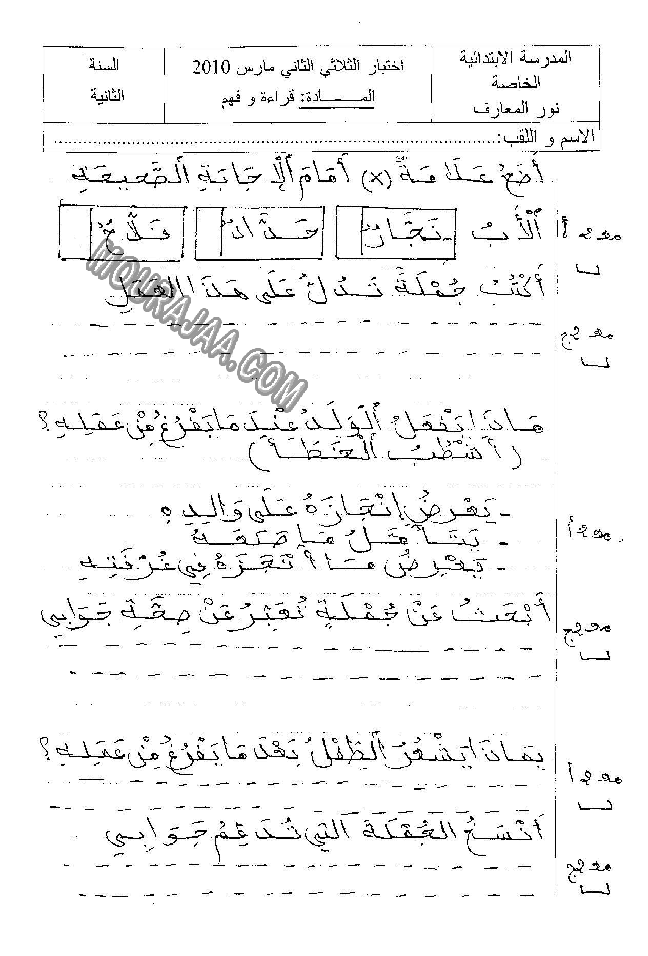 المدرسة الابتدائية الخاصة نور المعارف
اختبار الثلاثي الثاني مارس 2010
المـــــادة: قراءة و فهم
السنة الثانية
الاسم و اللقب:
أَضَعُ عَلَامَةً (x) أَمَامَ ٱلْإِجَابَةِ الصَّحِيحَةِ
ٱلْأَبُ نَجَّارٌ حَدَّادٌ فَلَّاحٌ
مع 2 أ
أَكْتُبُ جُمْلَةً تَدُلُّ عَلَى هَذَا العَمَلِ
مع 2 ج
MOURAJAA.COM
مَاذَا يَفْعَلُ ٱلْوَلَدُ عِنْدَ مَا يَفْرُغُ مِنْ عَمَلِهِ؟
(أَشْطُبُ الْخَطَأَ)
- يَعْرِضُ إِنْجَازَهُ عَلَى وَالِدِهِ
- يَتَأَمَّلُ مَا صَنَعَهُ
- يَعْرِضُ مَا أَنْجَزَهُ فِي غُرْفَتِهِ
مع 2 أ
أَبْحَثُ عَنْ جُمْلَةٍ تُعَبِّرُ عَنْ صِحَّةِ جَوَابِي
مع 2 ج
بِمَاذَا يَشْعُرُ ٱلطِّفْلُ بَعْدَ مَا يَفْرُغُ مِنْ عَمَلِهِ؟
مع 2 أ
أَنْسَخُ الجُمْلَةَ الَّتِي تُدَعِّمُ جَوَابِي
مع 2 ج